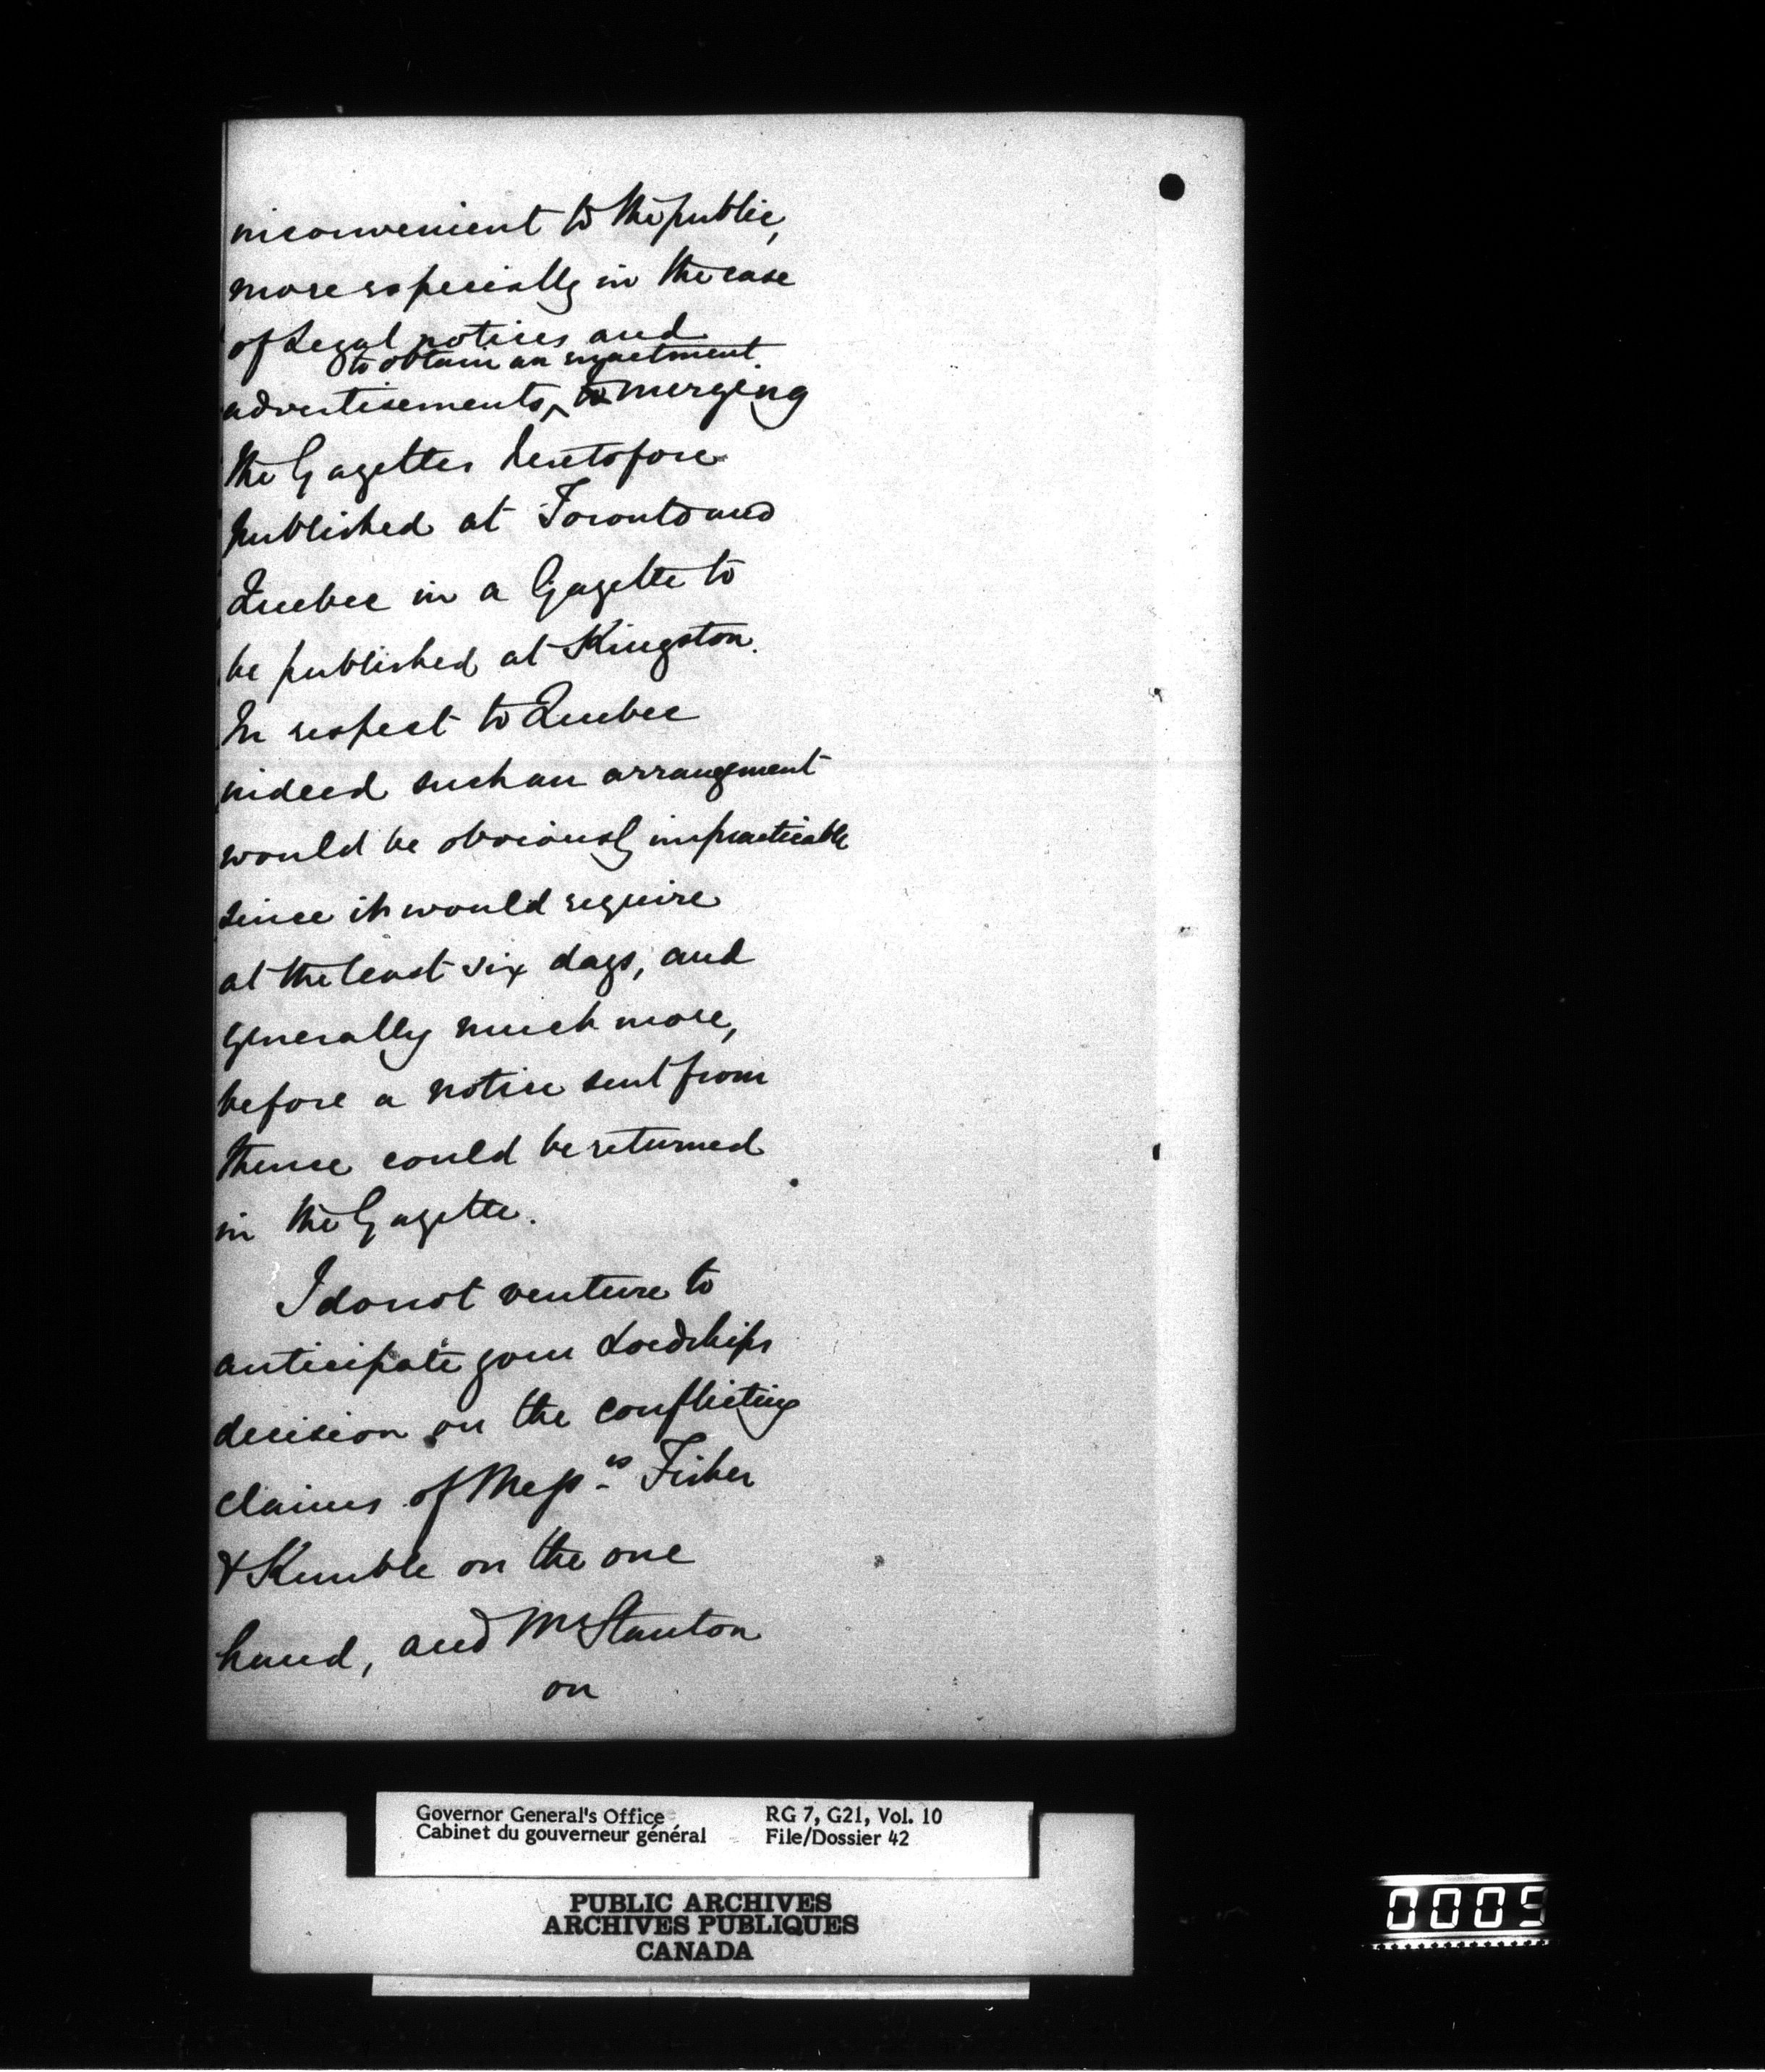 inconvenient to the public,
more especially in the case
of Legal notices and
to obtain an enactment
advertisements, ^ to merging
the Gazettes heretofore
published at Toronto and
Quebec in a Gazette to
be published at Kingston.
In respect to Quebec
indeed such an arrangment
would be obviously impracticable
since it would require
at the least six days, and
generally much more,
before a notice sent from
thence could be returned
in the Gazette.
I do not venture to
anticipate your Lordships
decision on the conflicting
claims of Messrs Fisher
& Kimble on the one
hand, and Mr Stanton
on
Governor General's Office RG 7, G21, Vol. 10
Cabinet du gouverneur général File/Dossier 42
PUBLIC ARCHIVES
ARCHIVES PUBLIQUES
CANADA
0005